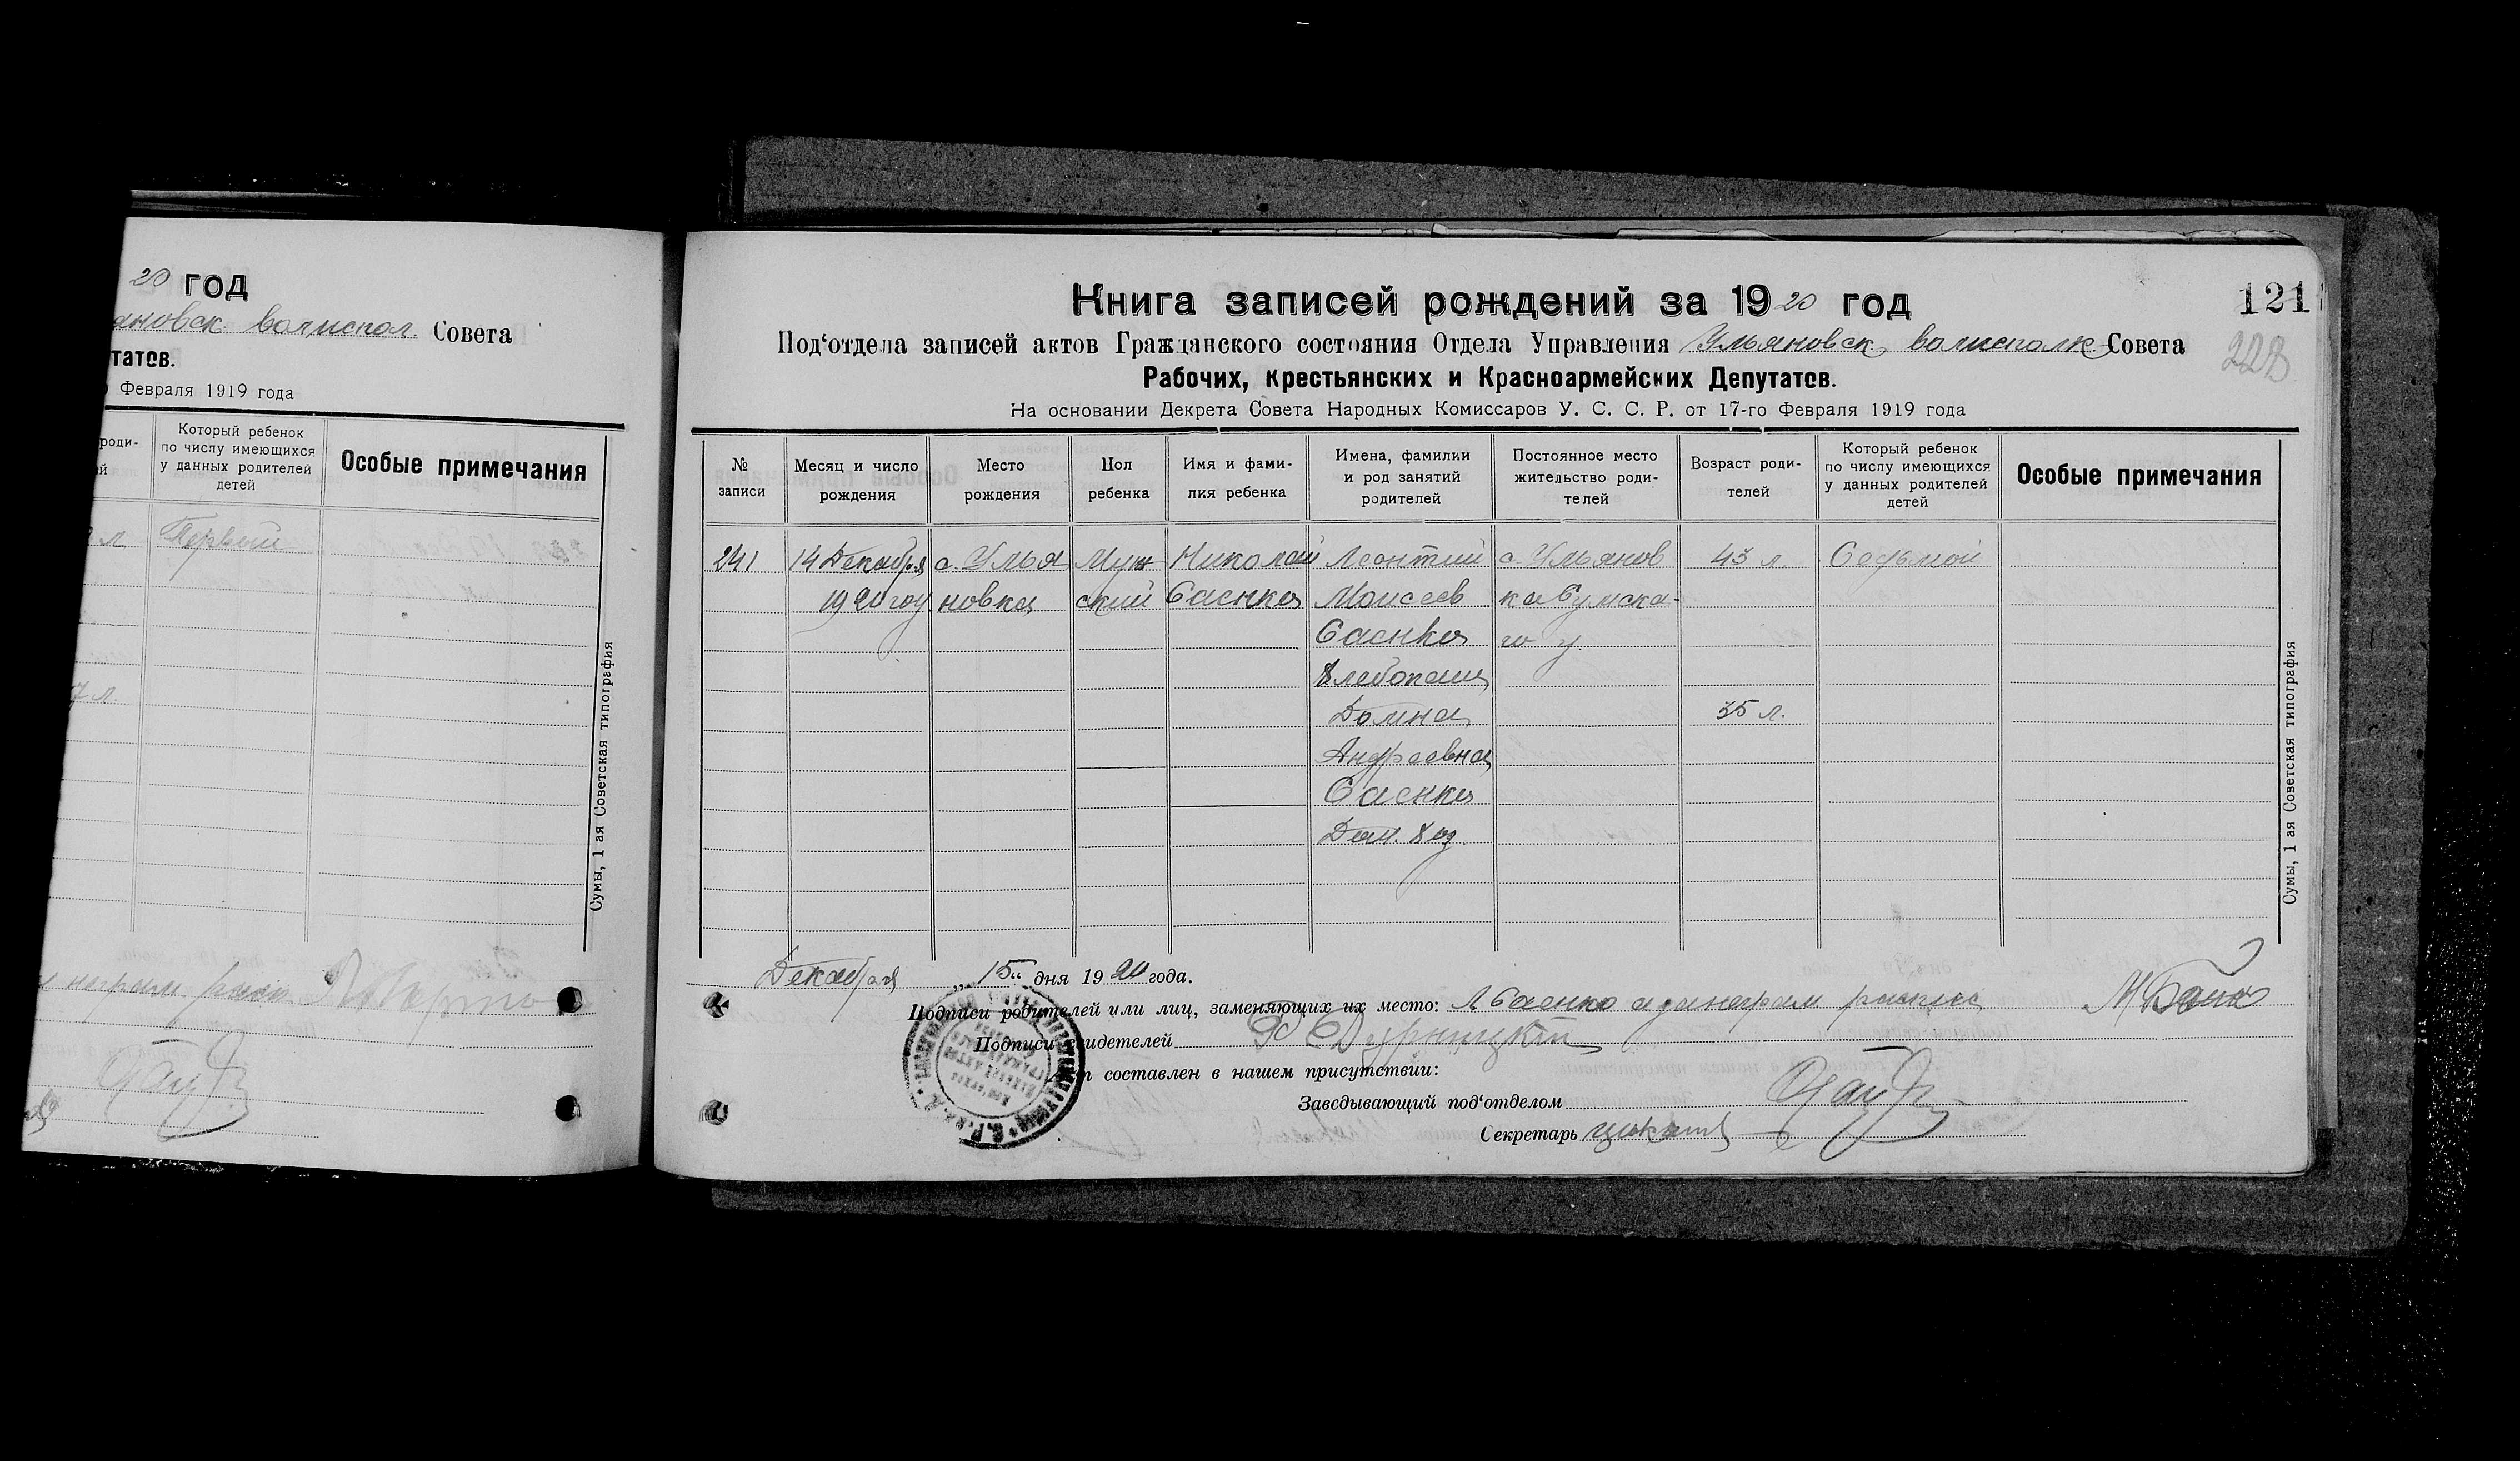 20 год
яновск. волиспол. Совета
татов.
Февраля 1919 года
роди-
й
Который ребенок
по числу имеющихся
у данных родителей
детей
Особые примечания
л
Первый
7 л.
Сумы, 1 ая Советская типография
неграм.
Книга записей рождений за 1920 год
121
Под‘отдела записей актов Гражданского состояния Отдела Управления Ульяновск. волисполк. Совета
228
Рабочих, Крестьянских и Красноармейских Депутатов.
На основании Декрета Совета Народных Комиссаров У. С. С. Р. от 17-го Февраля 1919 года
№
записи
Месяц и число
рождения
Место
рождения
Пол
ребенка
Имя и фами-
лия ребенка
Имена, фамилии
и род занятий
родителей
Постоянное место
жительство роди-
телей
Возраст роди-
телей
Который ребенок
по числу имеющихся
у данных родителей
детей
Особые примечания
241
14 Декабря
1920 году
с. Улья
новка
Муж
ский
Николай
Саенко
Леонтий
Моисеев
Саенко
Хлебопаш
Домна
Андреевна
Саенко
Дом. Хоз
с. Ульянов
ка Сумска-
го у.
43 л.
35 л.
Седьмой
Сумы, 1 ая Советская типография
Декабря „15“ дня 1920 года.
Подписи родителей или лиц, заменяющих их место: Л Саенко а за неграм распис
Подписи свидетелей
Акт составлен в нашем присутствии:
Заведывающий под‘отделом
Секретарь